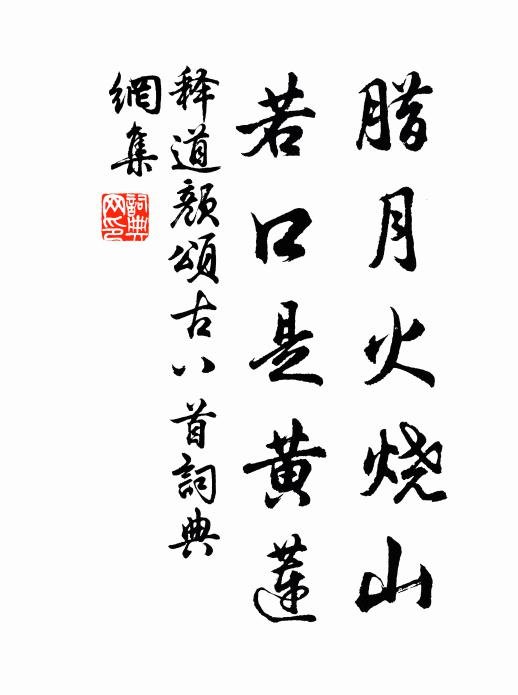 腊月火烧山
若口是黄莲
释道颜頌古八首詞典
網集
詞典
网印